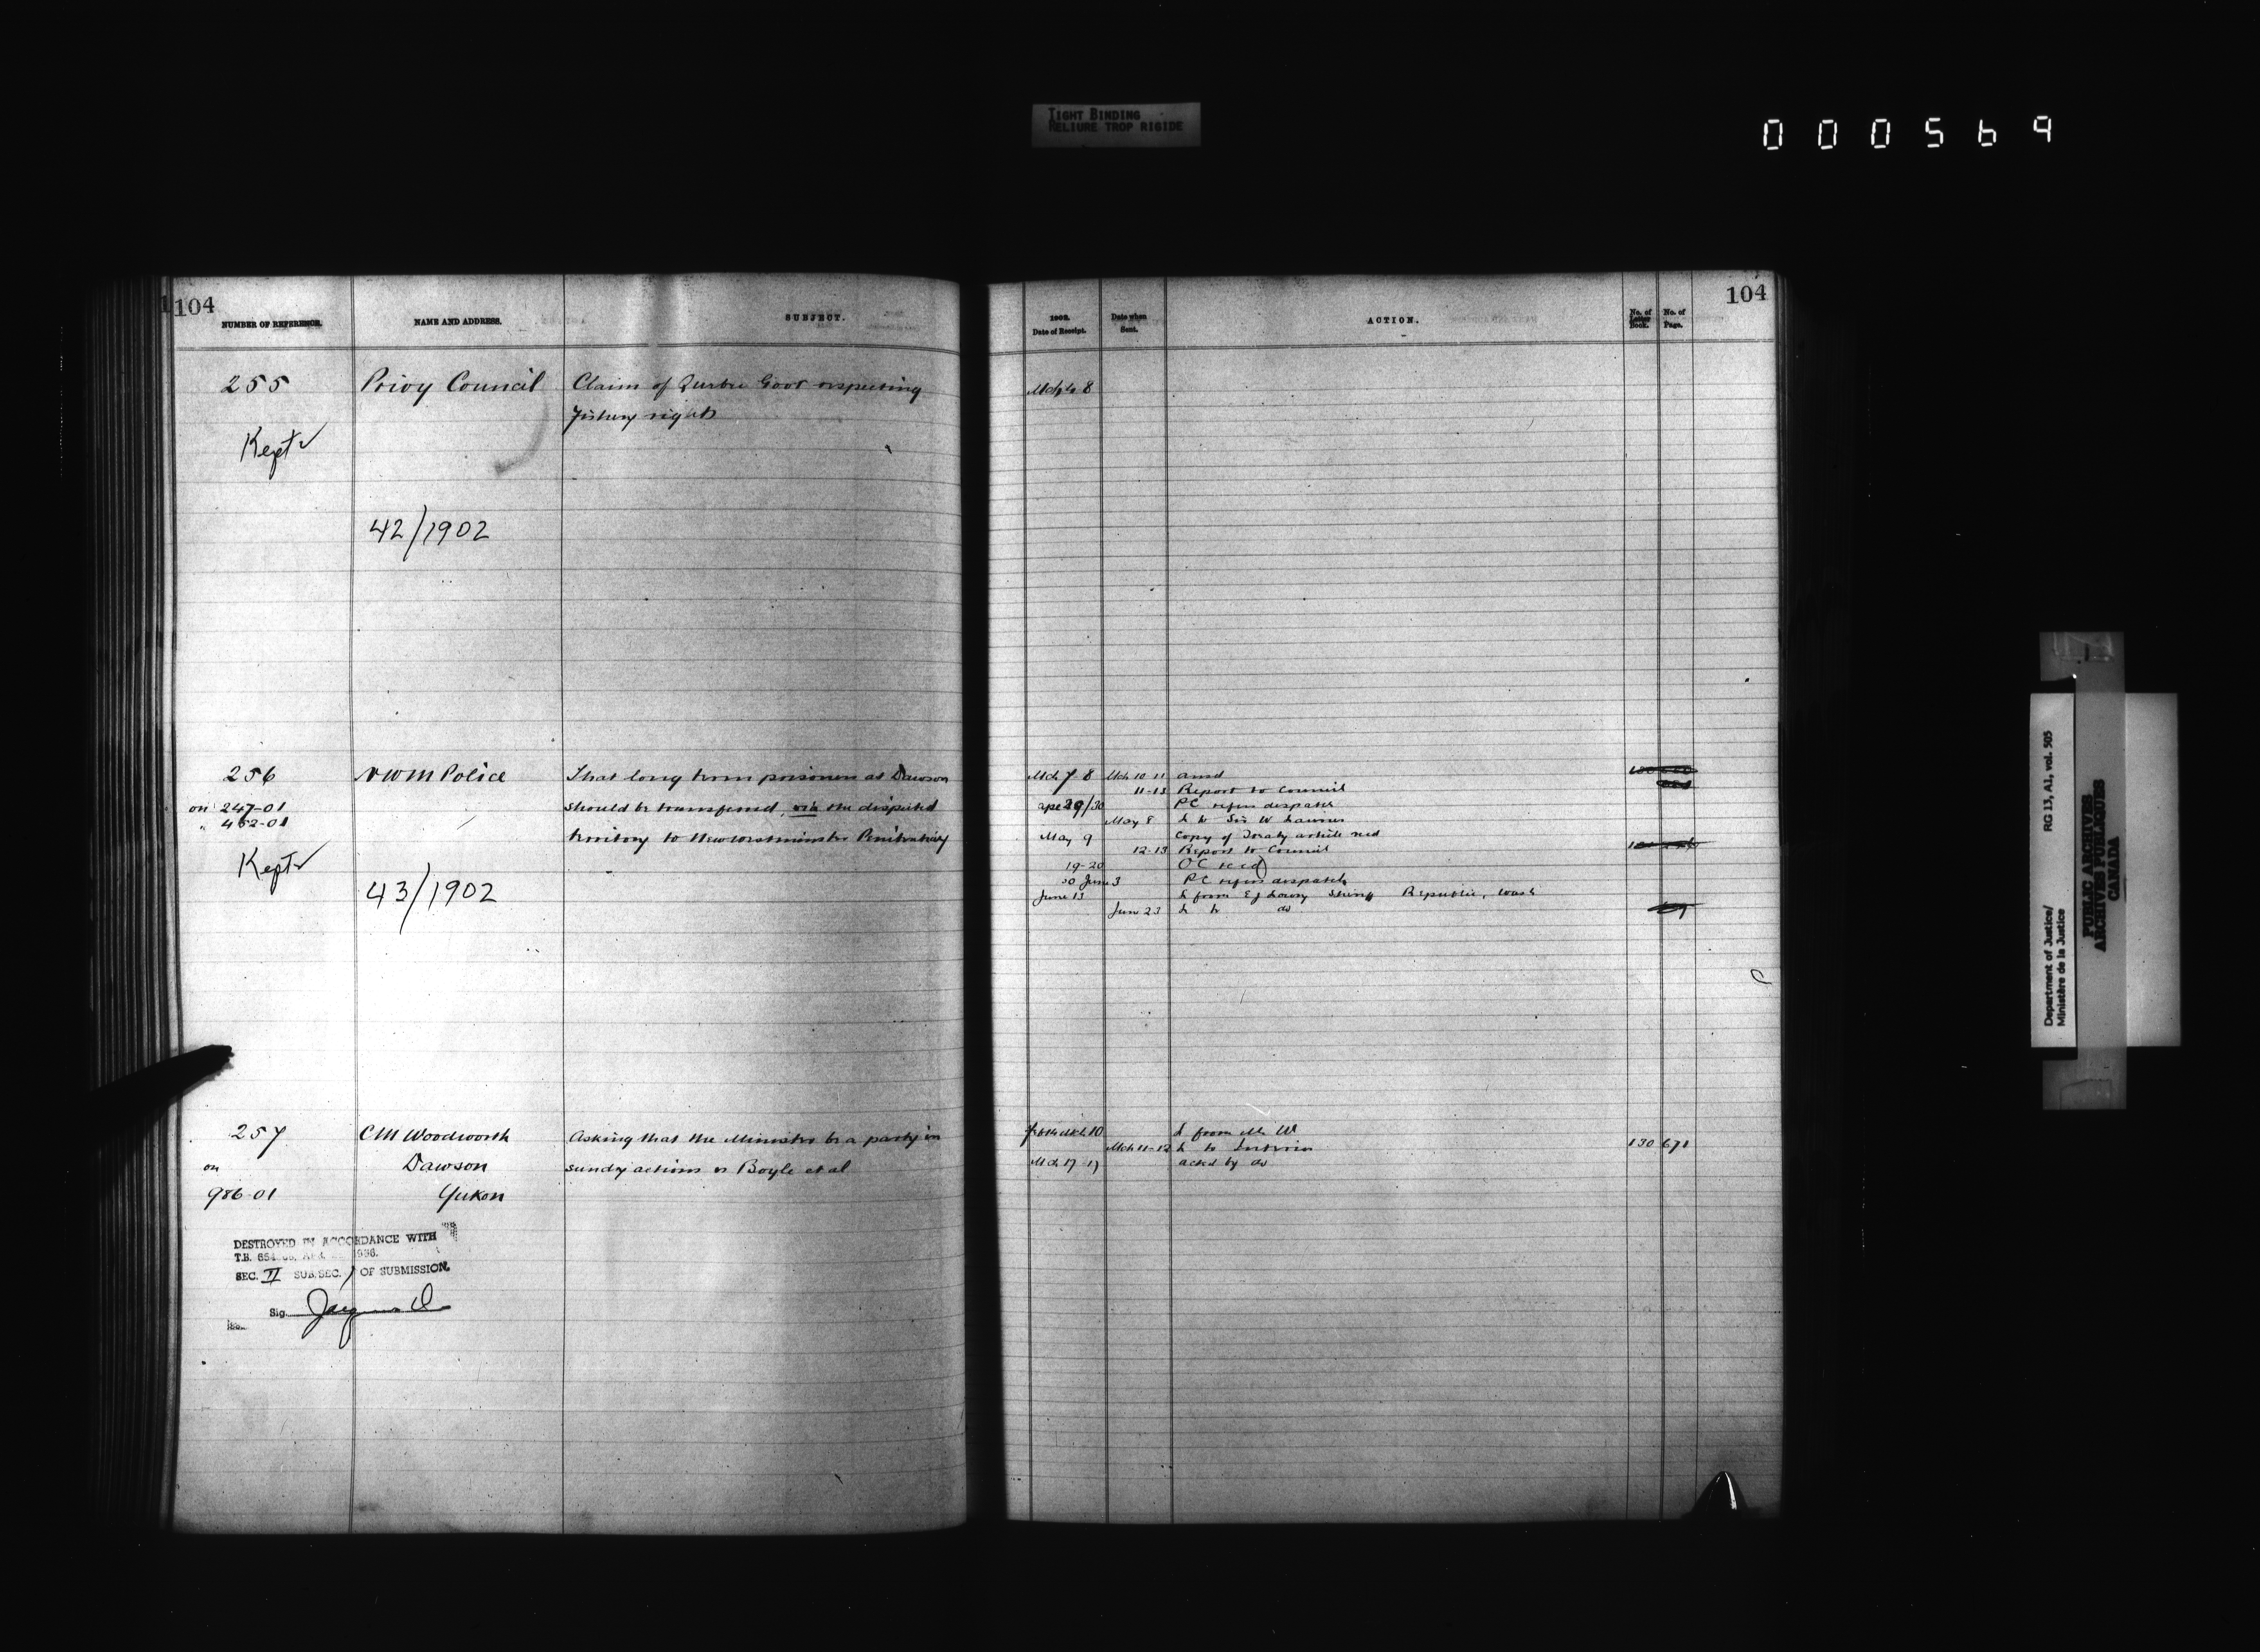 TIGHT BINDING
RELIURE TROP RIGIDE
000569
104
NUMBER OF REFERENCE.
NAME AND ADDRESS.
SUBJECT.
255
Privy Council
Claim of Quebec Govt respecting
Fishery rights
Kept
42/1902
256
NWM Police
That long term prisoners at Dawson
on 247-01
should be transferred, via the disputed
" 452-01
territory to New Westminster Penitentiary
Kept
43/1902
257
CM Woodworth
Asking that the Minister be a party in
on
Dawson
sundry actions vs Boyle et al
986-01
Yukon
DESTROYED IN ACCORDANCE WITH
T.B.
SEC. II SUB.SEC. 1 OF SUBMISSION.
Sig.
104
1902.
Date of Receipt.
Date when
Sent.
ACTION.
No. of
Letter
Book.
No. of
Page.
Mch 8
Mch 7 8
Mch 10 11
ansd
11-13 Report to Council
Apl 29/30
PC refers despatch
May 8
L to Sir W Laurier
May 9
Copy of Treaty article recd
12-13 Report to Council
19-20
OC recd
30 June 3
PC refers despatch
June 13
L from Sheriff Republic, Wash
June 23
L to do
Mch 10
L from Mr W
Mch 11-12
L to Interior
130 671
Mch 17 17
ackd by do
Department of Justice/
Ministère de la Justice
RG 13, A1, vol. 505
PUBLIC ARCHIVES
ARCHIVES PUBLIQUES
CANADA